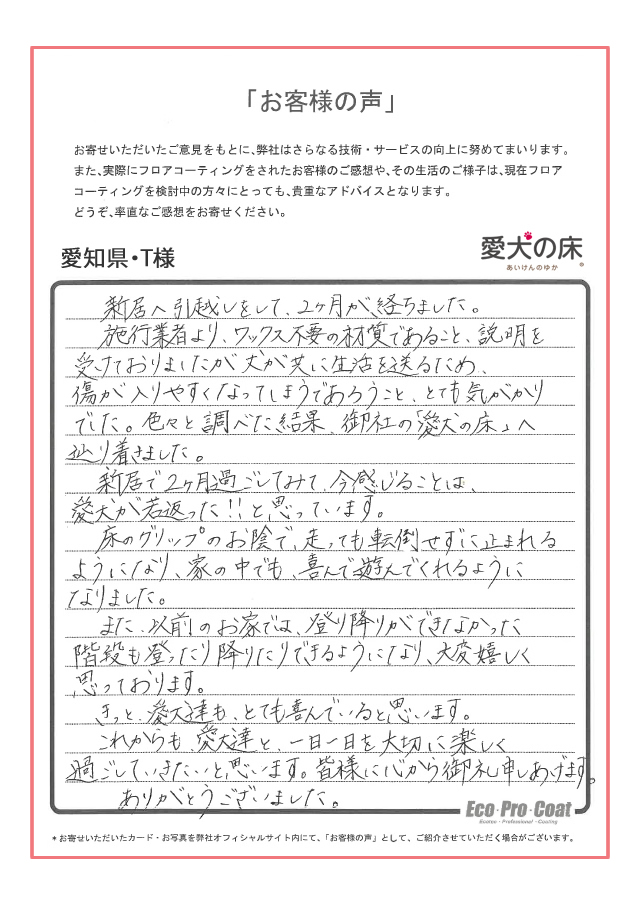 「お客様の声」
お寄せいただいたご意見をもとに、弊社はさらなる技術・サービスの向上に努めてまいります。
また、実際にフロアコーティングをされたお客様のご感想や、その生活のご様子は、現在フロア
コーティングを検討中の方々にとっても、貴重なアドバイスとなります。
どうぞ、率直なご感想をお寄せください。
愛知県・T様
愛犬の床
あいけんのゆか
新居へ引越しをして、2ヶ月が、経ちました。
施行業者より、ワックス不要の材質であること、説明を
受けておりましたが犬が共に生活を送るため、
傷が入りやすくなってしまうであろうこと、とても気がかり
でした。色々と調べた結果、御社の「愛犬の床」へ
辿り着きました。
新居で2ヶ月過ごしてみて、今感じることは、
愛犬が若返った!!と思っています。
床のグリップのお陰で、走っても転倒せずに止まれる
ようになり、家の中でも、喜んで遊んでくれるように
なりました。
また、以前のお家では、登り降りができなかった
階段も登ったり降りたりできるようになり、大変嬉しく
思っております。
きっと、愛犬達も、とても喜んでいると思います。
これからも、愛犬達と、一日一日を大切に楽しく
過ごしていきたいと思います。皆様に心から御礼申しあげます。
ありがとうございました。
Eco・Pro・Coat
Ecoton・Professional・Coating
*お寄せいただいたカード・お写真を弊社オフィシャルサイト内にて、「お客様の声」として、ご紹介させていただく場合がございます。